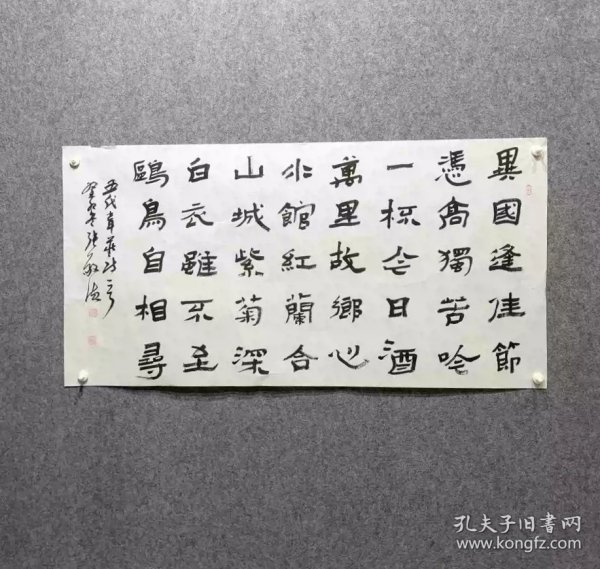 異國逢佳節
憑高獨苦吟
一杯今日酒
萬里故鄉心
水館紅蘭合
山城紫菊深
白衣雖不至
鷗鳥自相尋
韋莊詩
孔夫子旧书网
www.kongfz.com